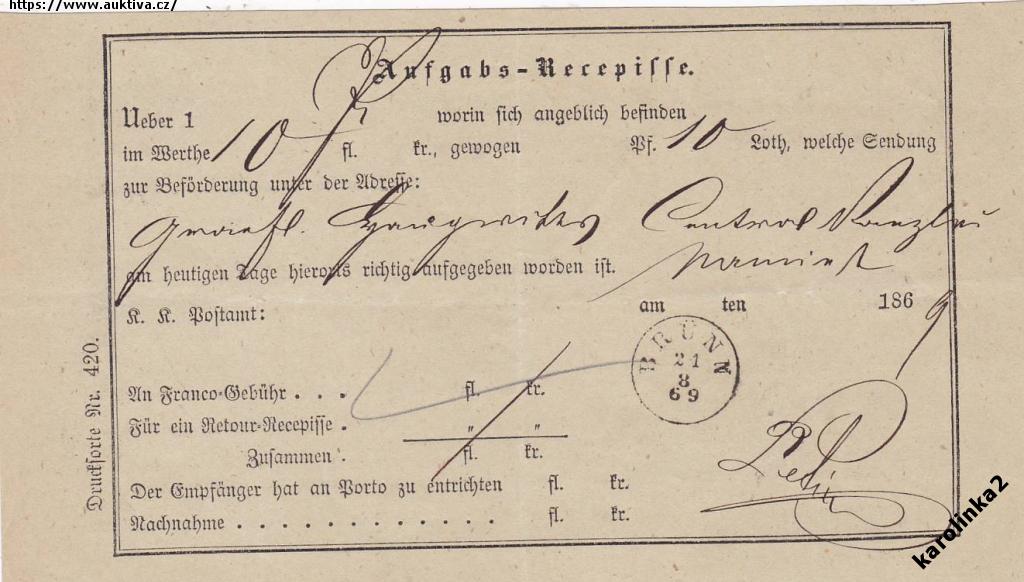 https://www.auktiva.cz/
Aufgabs-Recepisse.
Ueber 1 worin sich angeblich befinden
im Werthe 10 fl. kr., gewogen Pf. 10 Loth, welche Sendung
zur Beförderung unter der Adresse:
Graefl. Haugwitzs Central Kanzlei
am heutigen Tage hierorts richtig aufgegeben worden ist. Namiest
am ten 1869
K. K. Postamt:
BRÜNN
21
8
69
An Franco-Gebühr . . . fl. kr.
Für ein Retour-Recepisse . " "
Zusammen . fl. kr.
Der Empfänger hat an Porto zu entrichten fl. kr.
Nachnahme . . . . . . . . . . . . . fl. kr.
Drucksorte Nr. 420.
karolinka2